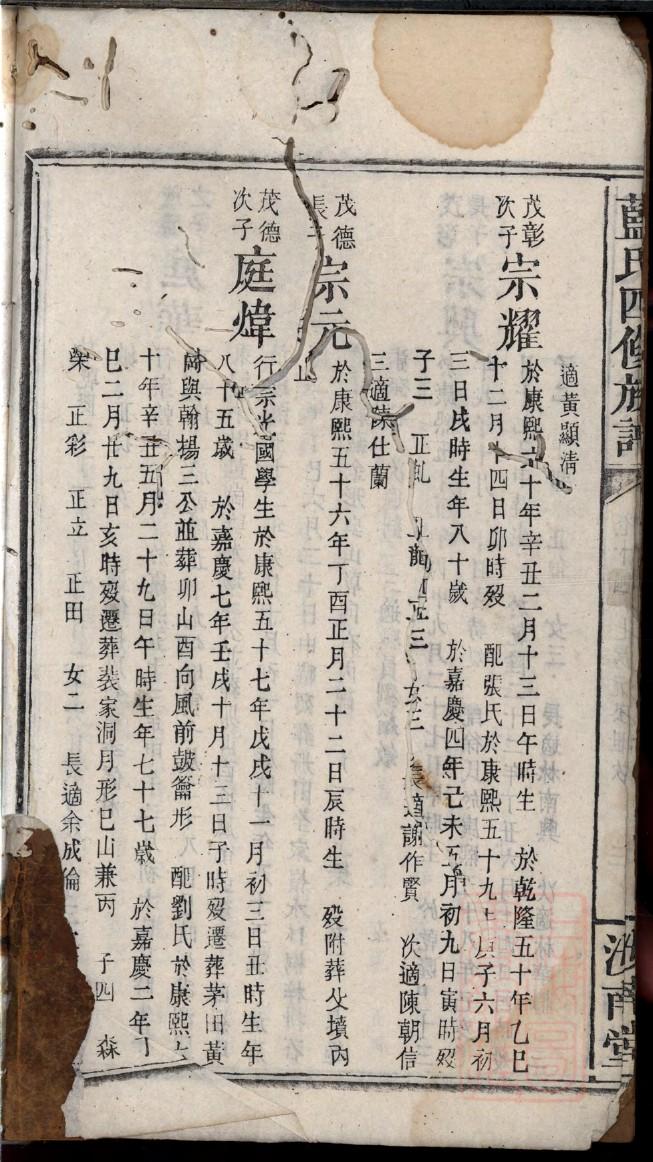 藍氏四修族譜
汝南堂
適黃顯清
茂彰次子宗耀於康熙六十年辛丑二月十三日午時生　於乾隆五十年乙巳
十二月　四日卯時歿　配張氏於康熙五十九　庚子六月初
三日戌時生年八十歲　於嘉慶四年己未五月初九日寅時歿
子三　正　正龍　正三　女三　長適謝作賢　次適陳朝信
三適陳仕蘭
茂德長子宗元於康熙五十六年丁酉正月二十二日辰時生　歿附葬父墳內
止
茂德次子庭煒行宗光國學生於康熙五十七年戊戌十一月初三日丑時生年
八十五歲　於嘉慶七年壬戌十月十三日子時歿遷葬茅田黃
與翰揚三公並葬卯山酉向風前皷籥形　配劉氏於康熙六
十年辛丑五月二十九日午時生年七十七歲　於嘉慶二年丁
巳二月廿九日亥時歿遷葬裴家洞月形巳山兼丙　子四　森
榮　正彩　正立　正田　女二　長適余成倫